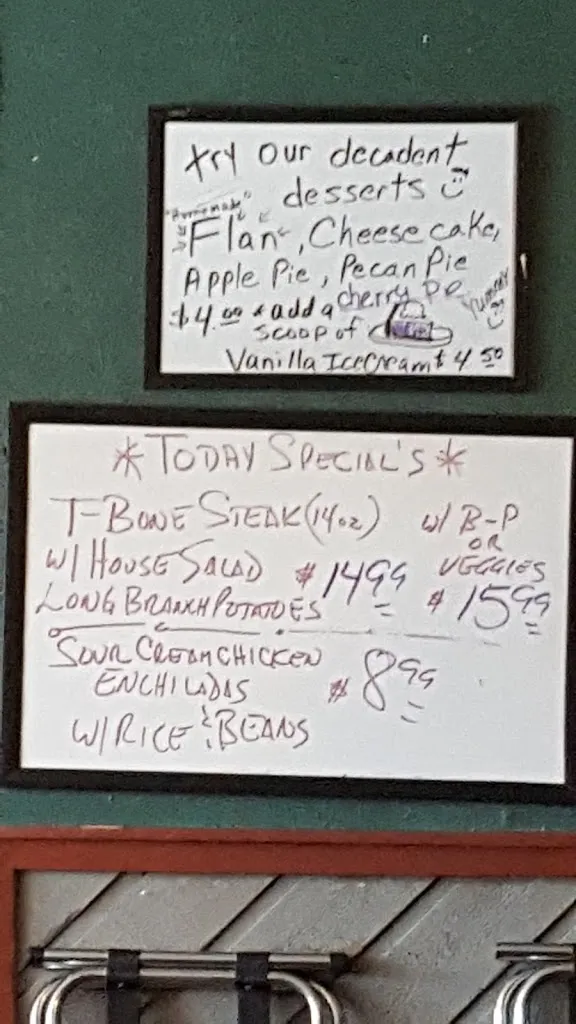 try our decadent
desserts
"Homemade"
Flan, Cheese cake,
Apple Pie, Pecan Pie
cherry Pie
Yummy
$4.00 * add a
scoop of
Vanilla IceCream $4.50
*TODAY SPECIAL'S*
T-BONE STEAK (14oz)
W/ HOUSE SALAD $14.99
LONG BRANCH POTATOES
W/ B-P
OR
VEGGIES
$15.99
SOUR CREAM CHICKEN
ENCHILADAS $8.99
W/ RICE & BEANS